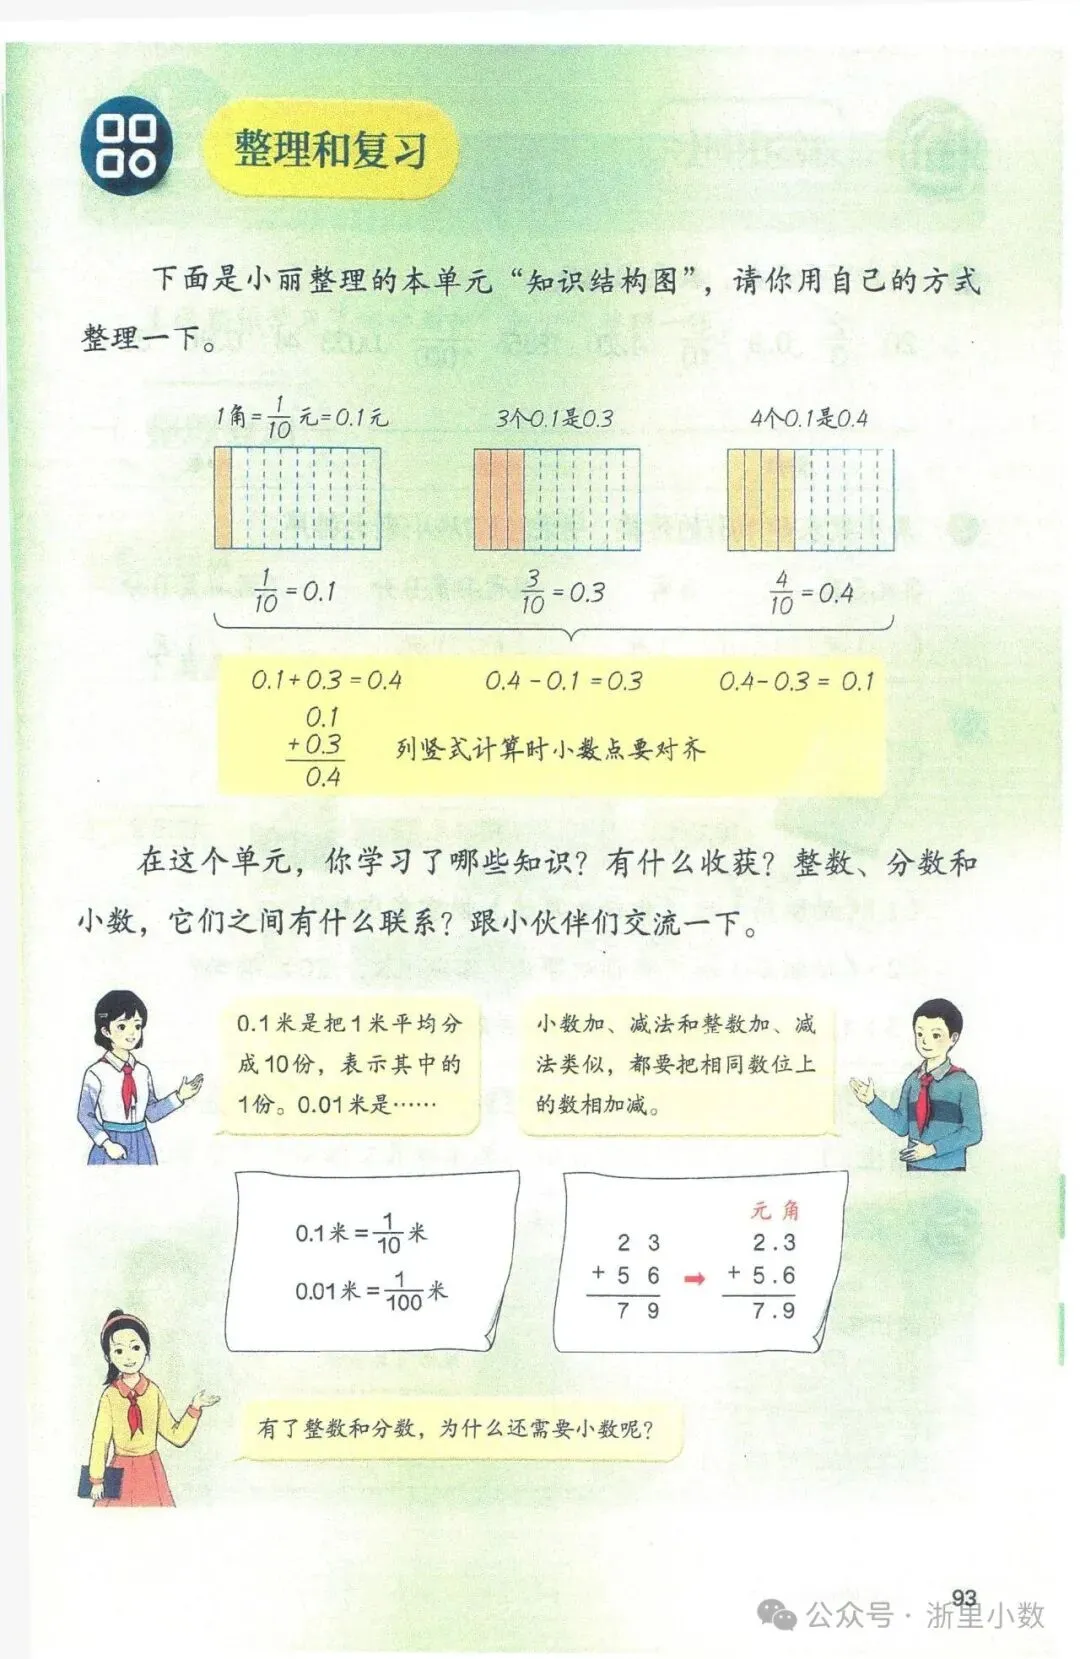 整理和复习
下面是小丽整理的本单元“知识结构图”，请你用自己的方式
整理一下。
1角=1/10元=0.1元 3个0.1是0.3 4个0.1是0.4
1/10=0.1 3/10=0.3 4/10=0.4
0.1+0.3=0.4 0.4-0.1=0.3 0.4-0.3=0.1
0.1
+0.3 列竖式计算时小数点要对齐
0.4
在这个单元，你学习了哪些知识？有什么收获？整数、分数和
小数，它们之间有什么联系？跟小伙伴们交流一下。
0.1米是把1米平均分
成10份，表示其中的
1份。0.01米是……
小数加、减法和整数加、减
法类似，都要把相同数位上
的数相加减。
0.1米=1/10米
0.01米=1/100米
元 角
2 3 2.3
+ 5 6 ➡ + 5.6
7 9 7.9
有了整数和分数，为什么还需要小数呢？
93
公众号·浙里小数